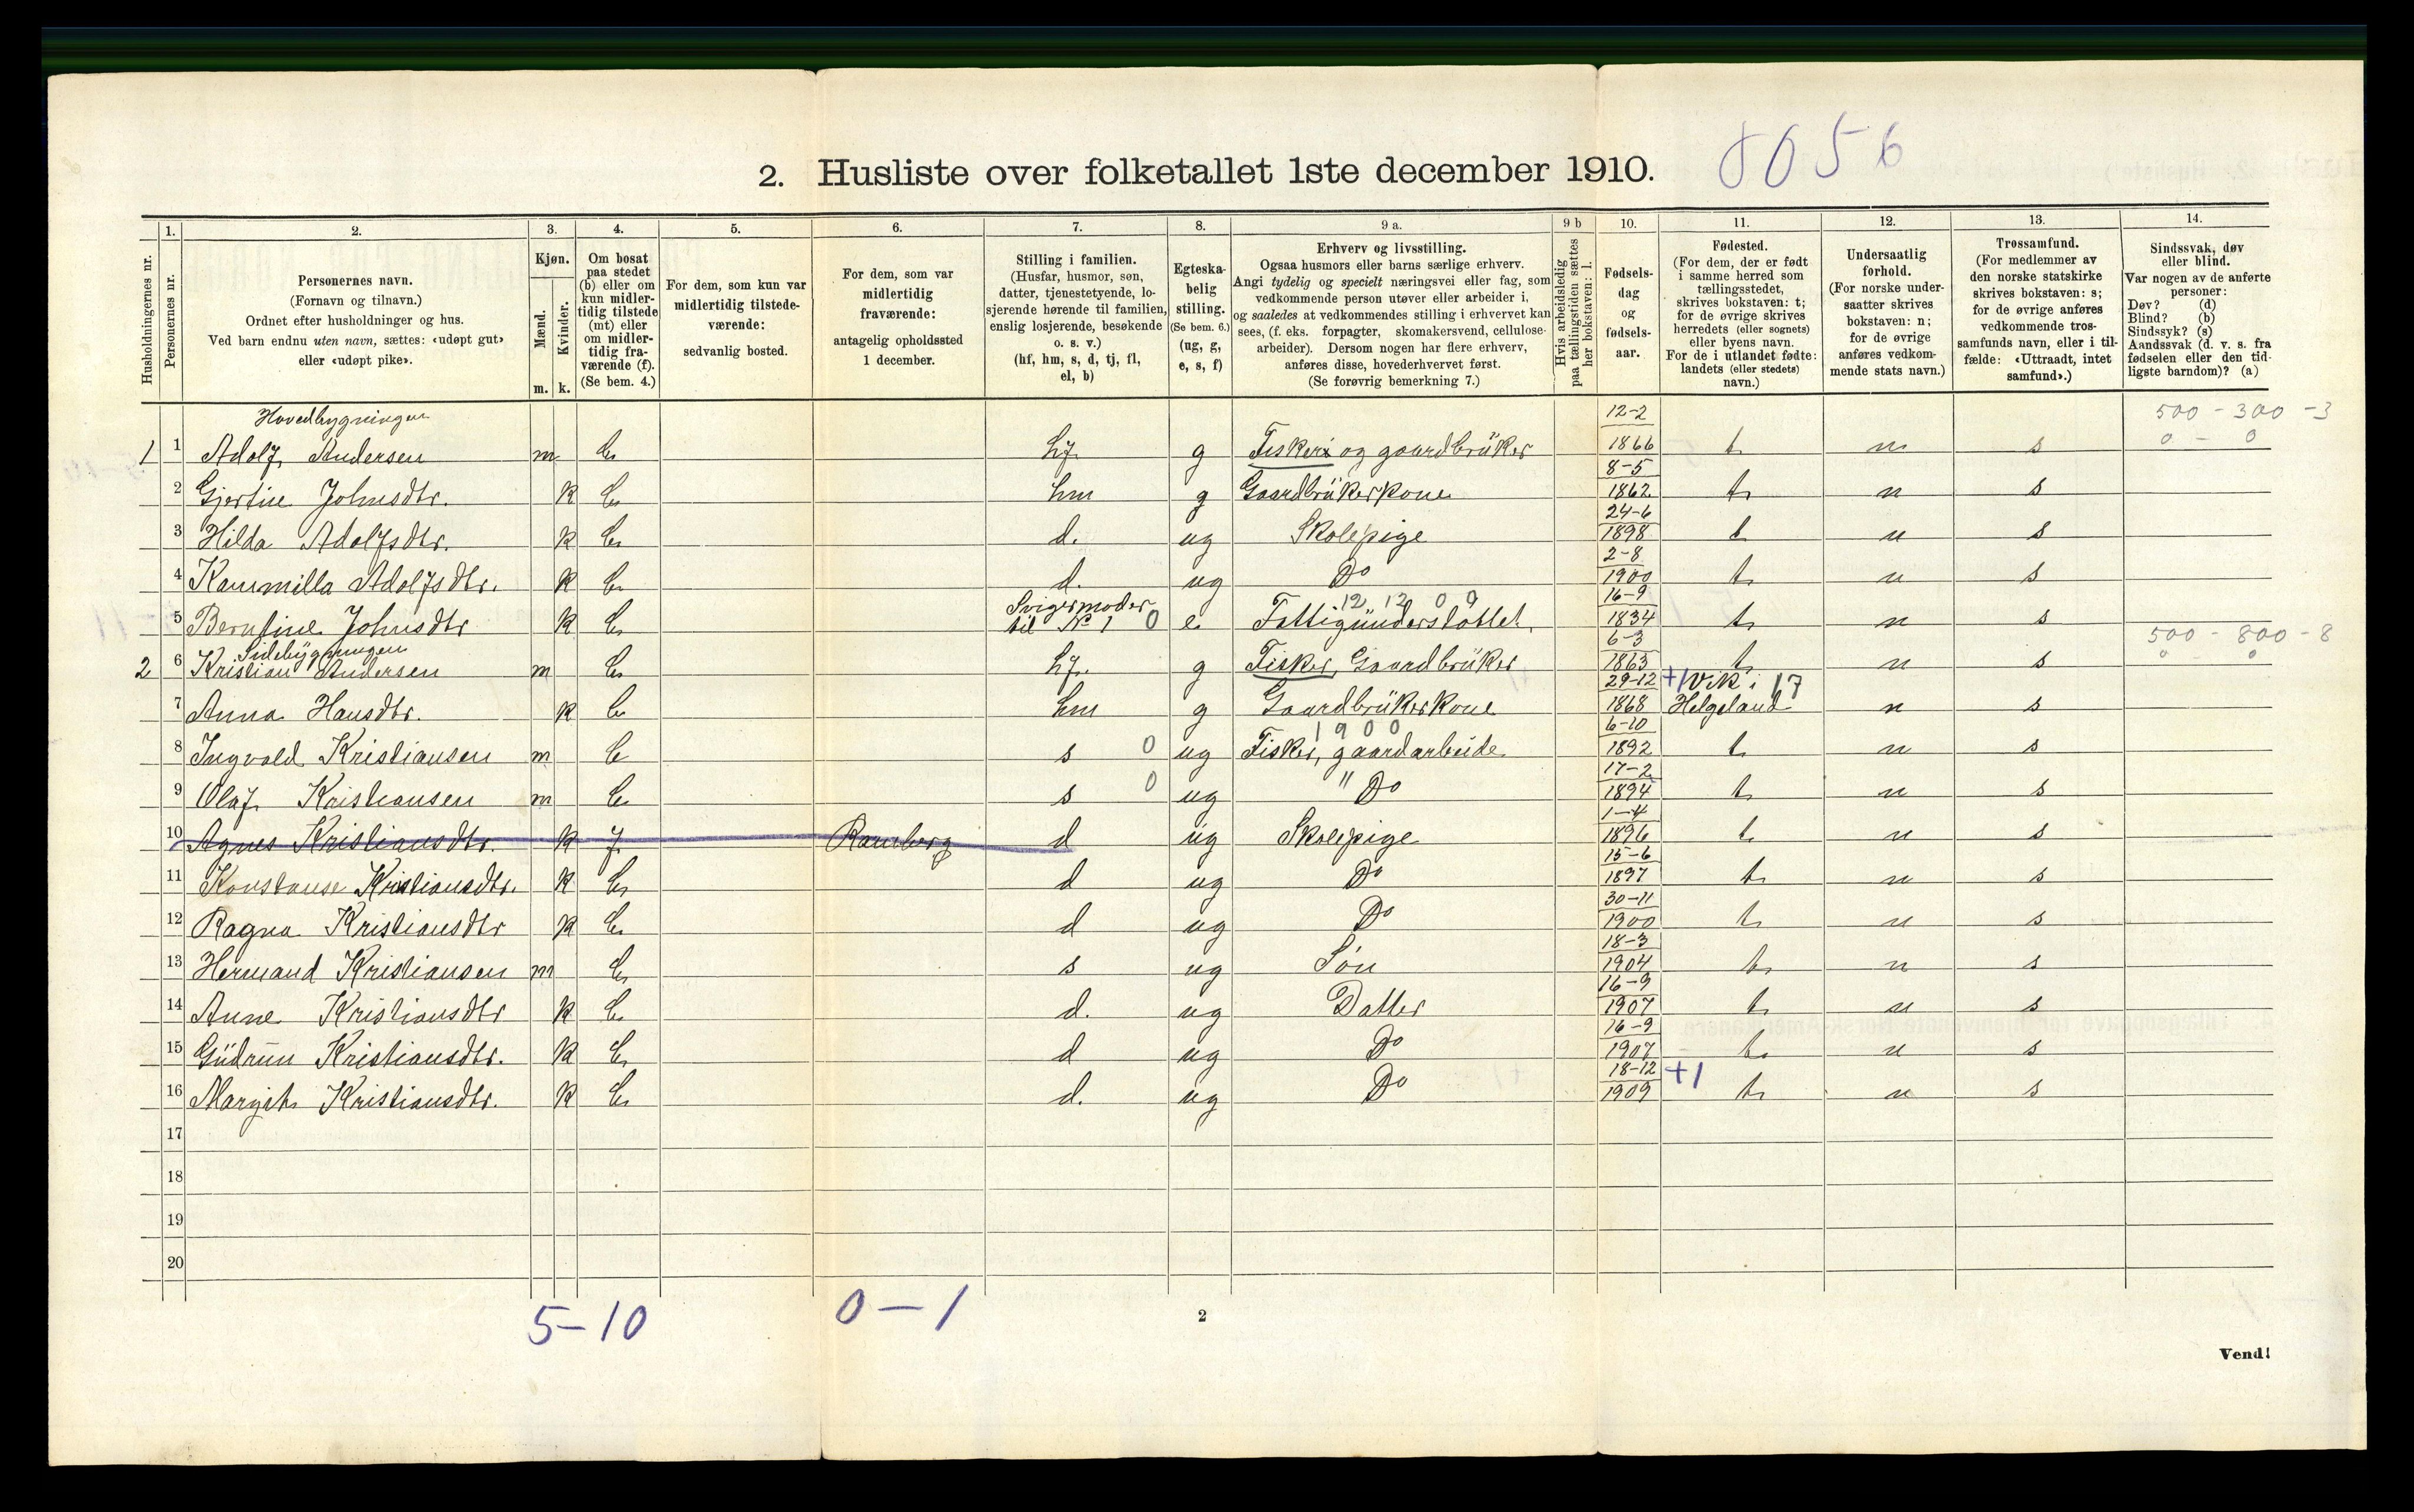 2. Husliste over folketallet 1ste december 1910. 8056
1. 2. 3. 4. 5. 6. 7. 8. 9 a. 9 b 10. 11. 12. 13. 14.
Husholdningernes nr.
Personernes nr.
Personernes navn.
(Fornavn og tilnavn.)
Ordnet efter husholdninger og hus.
Ved barn endnu uten navn, sættes: «udøpt gut»
eller «udøpt pike».
Kjøn.
Mænd.
Kvinder.
m. k.
Om bosat
paa stedet
(b) eller om
kun midler-
tidig tilstede
(mt) eller
om midler-
tidig fra-
værende (f).
(Se bem. 4.)
For dem, som kun var
midlertidig tilstede-
værende:
sedvanlig bosted.
For dem, som var
midlertidig
fraværende:
antagelig opholdssted
1 december.
Stilling i familien.
(Husfar, husmor, søn,
datter, tjenestetyende, lo-
sjerende hørende til familien,
enslig losjerende, besøkende
o. s. v.)
(hf, hm, s, d, tj, fl,
el, b)
Egteska-
belig
stilling.
(Se bem. 6.)
(ug, g,
e, s, f)
Erhverv og livsstilling.
Ogsaa husmors eller barns særlige erhverv.
Angi tydelig og specielt næringsvei eller fag, som
vedkommende person utøver eller arbeider i,
og saaledes at vedkommendes stilling i erhvervet kan
sees, (f. eks. forpagter, skomakersvend, cellulose-
arbeider). Dersom nogen har flere erhverv,
anføres disse, hovederhvervet først.
(Se forøvrig bemerkning 7.)
Hvis arbeidsledig
paa tællingstiden sættes
her bokstaven: l.
Fødsels-
dag
og
fødsels-
aar.
Fødested.
(For dem, der er født
i samme herred som
tællingsstedet,
skrives bokstaven: t;
for de øvrige skrives
herredets (eller sognets)
eller byens navn.
For de i utlandet fødte:
landets (eller stedets)
navn.)
Undersaatlig
forhold.
(For norske under-
saatter skrives
bokstaven: n;
for de øvrige
anføres vedkom-
mende stats navn.)
Trossamfund.
(For medlemmer av
den norske statskirke
skrives bokstaven: s;
for de øvrige anføres
vedkommende tros-
samfunds navn, eller i til-
fælde: «Uttraadt, intet
samfund».)
Sindssvak, døv
eller blind.
Var nogen av de anførte
personer:
Døv? (d)
Blind? (b)
Sindssyk? (s)
Aandssvak (d. v. s. fra
fødselen eller den tid-
ligste barndom)? (a)
Hovedbygningen 12-2 500 - 300 - 3
1 1 Adolf Andersen m b hf g Fiskeri og gaardbrüker 1866 t n s 0 - 0
8-5
2 Gjertine Johnsdtr. k b hm g Gaardbrükerkone 1862 t n s
24-6
3 Hilda Adolfsdtr. k b d. ug Skolepige 1898 t n s
2-8
4 Kammilla Adolfsdtr. k b d. ug Do 1900 t n s
Svigermoder 12 12 0 9 16-9
5 Berntine Johnsdtr k b til No 1 0 e Fattigünderstöttet. 1834 t n s
Sidebygningen 6-3 500 - 800 - 8
2 6 Kristian Andersen m b hf. g Fisker, Gaardbrüker 1863 t n s 0 0
29-12 +1 Vik i 17
7 Anna Hansdtr. k b hm g Gaardbrükerkone 1868 Helgeland n s
1900 6-10
8 Ingvald Kristiansen m b s 0 ug Fisker, gaardarbeide 1892 t n s
17-2
9 Olaf Kristiansen m b s 0 ug " Do 1894 t n s
1-4
10 Agnes Kristiansdtr. k f Ramberg d ug Skolepige 1896 t n s
15-6
11 Konstanse Kristiansdtr. k b d ug Do 1897 t n s
30-11
12 Ragna Kristiansdtr k b d ug Do 1900 t n s
18-3
13 Hermand Kristiansen m b s ug Sön 1904 t n s
16-9
14 Anne Kristiansdtr k b d. ug Datter 1907 t n s
16-9
15 Güdrün Kristiansdtr. k b d ug Do 1907 t n s
18-12 +1
16 Margith Kristiansdtr. k b d. ug Do 1909 t n s
17
18
19
20
5-10 0-1
2
Vend!